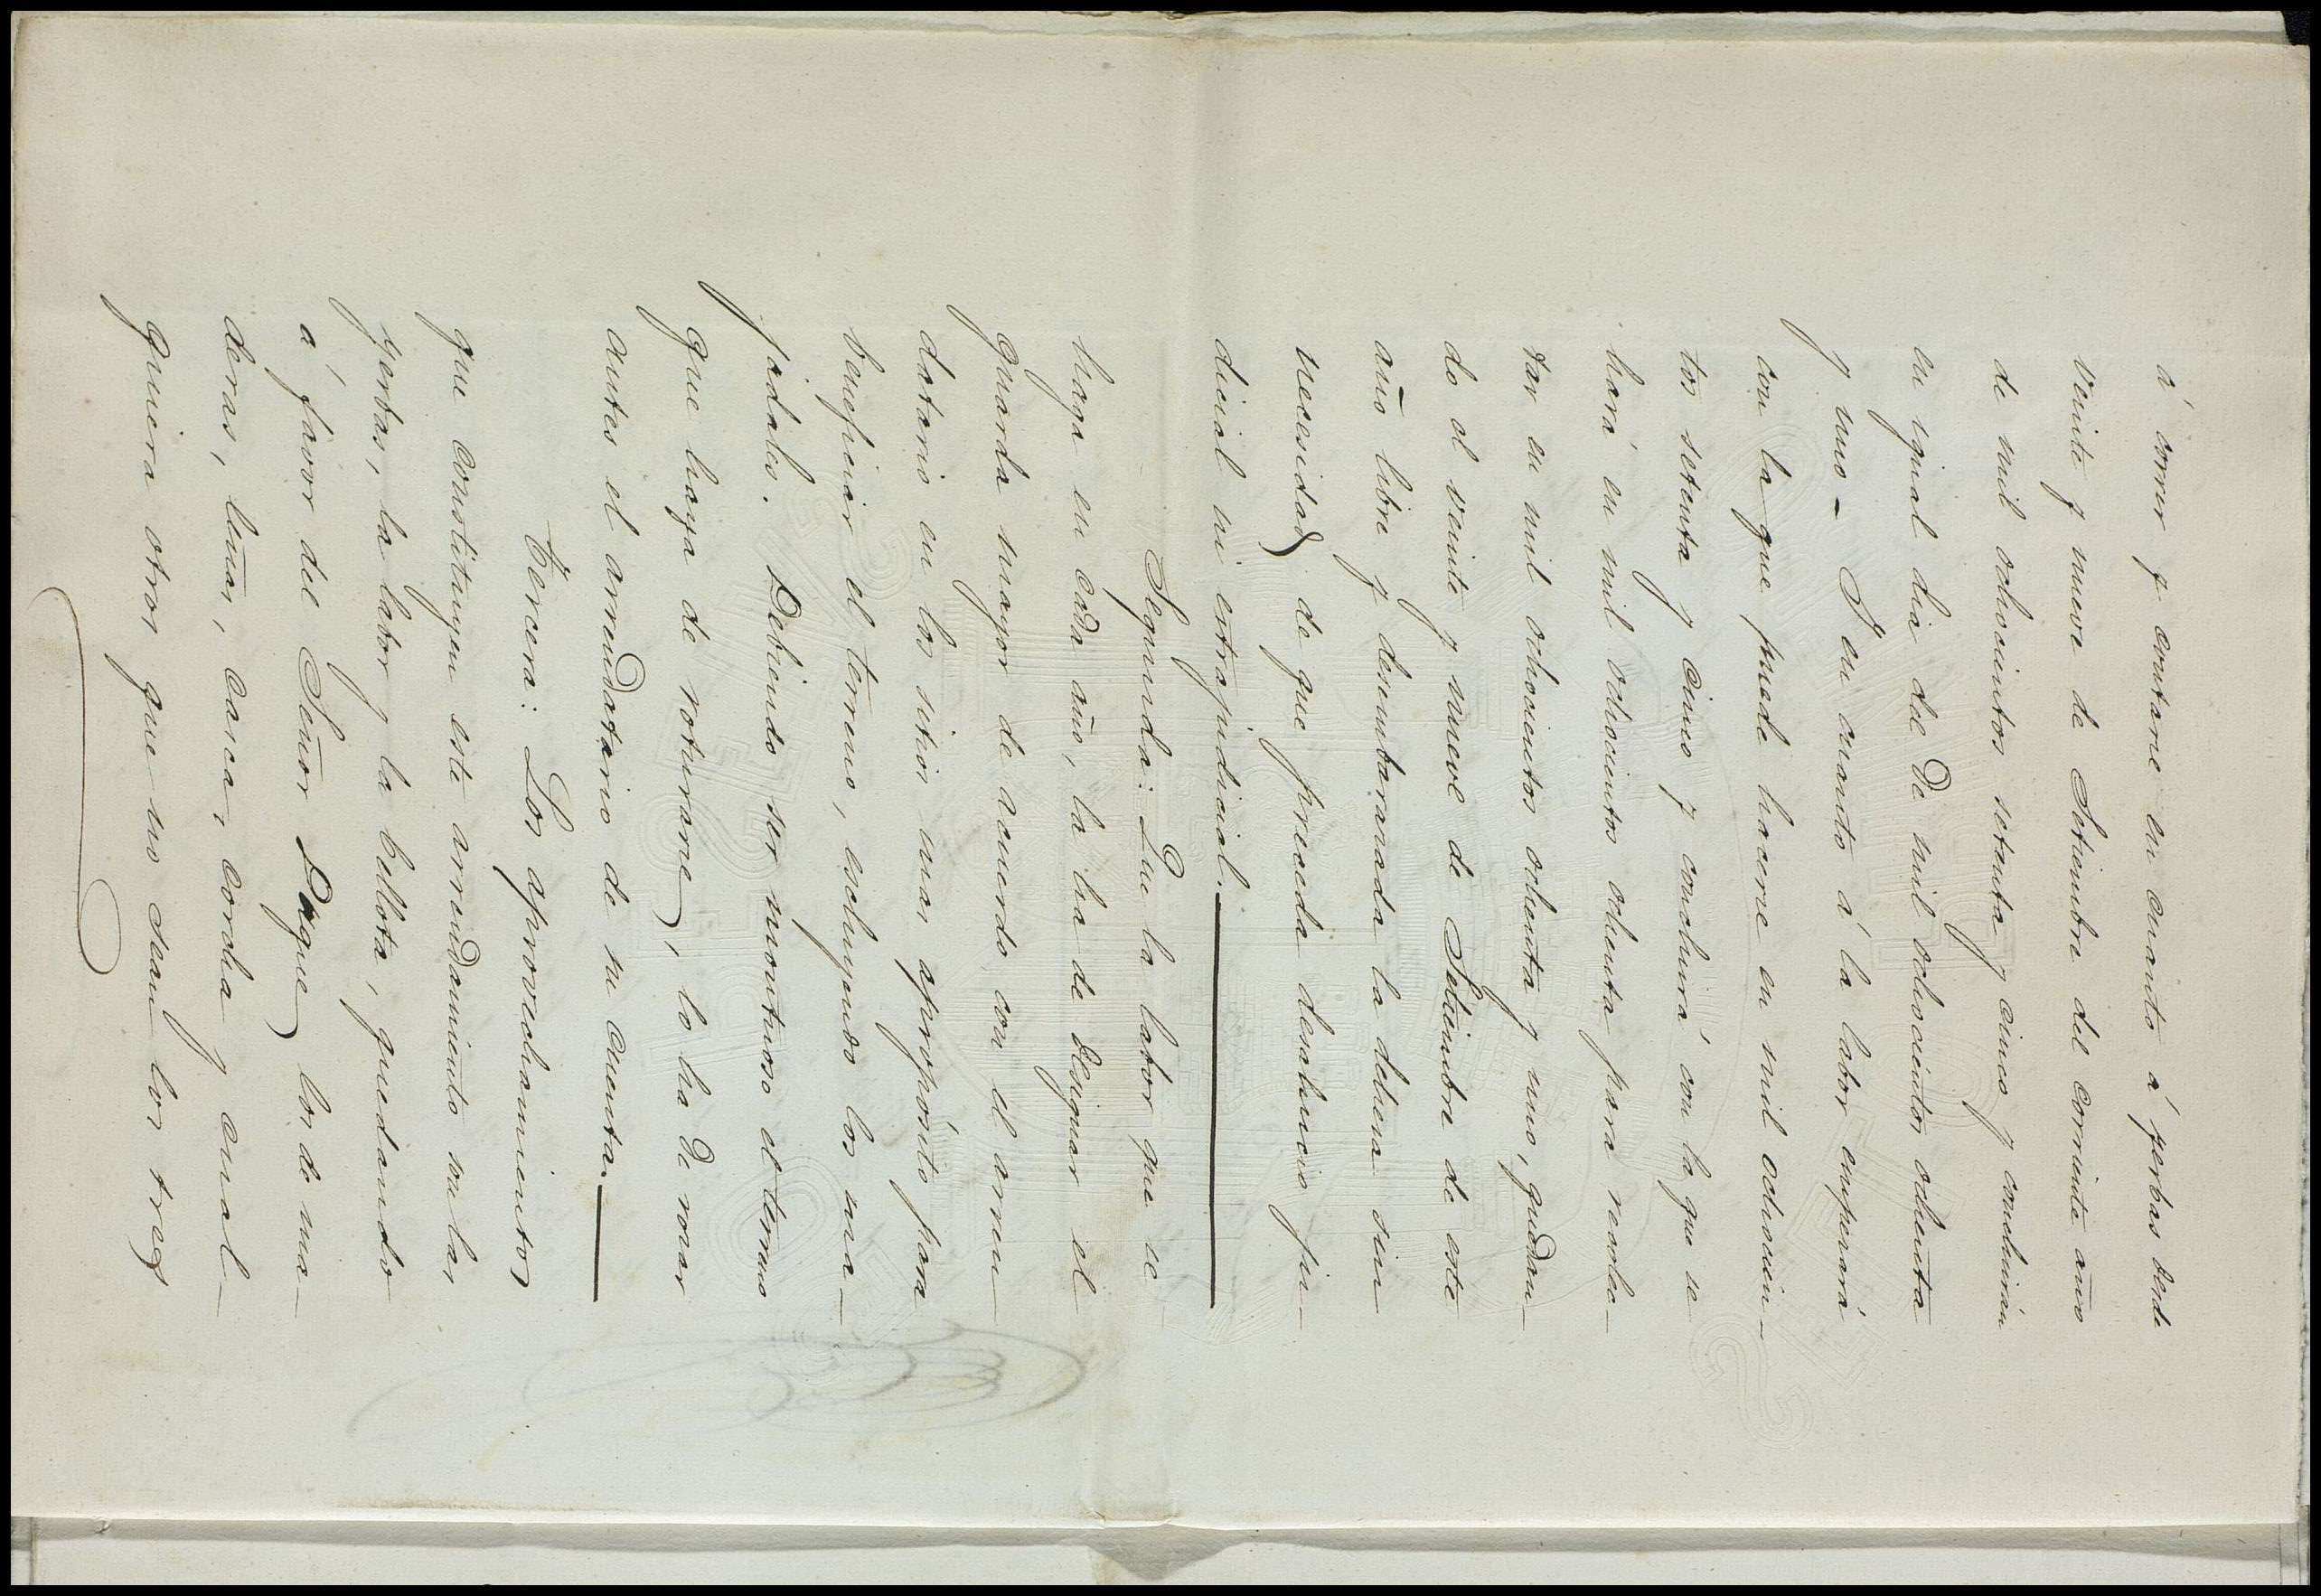 á correr y contarse en cuanto á yerbas desde
veinte y nueve de Setiembre del corriente año
de mil ochocientos setenta y cinco y concluirán
en igual dia del de mil ochocientos ochenta
y uno - Y en cuanto á la labor empezará
con la que puede hacerse en mil ochocien-
tos setenta y cinco y concluirá con la que se
hará en mil ochocientos ochenta para recolec-
tar en mil ochocientos ochenta y uno, quedan-
do el veinte y nueve de Setiembre de este
año libre y desembarazada la dehesa sin
necesidad de que preceda desahucio ju-
dicial ni extrajudicial.
Segunda: Que la labor que se
haga en cada año, la ha de designar el
guarda mayor de acuerdo con el arren-
datario en los sitios mas apropósito para
beneficiar el terreno, escluyendo los ma-
jadales. Debiendo ser montuoso el terreno
que haya de roturarse, lo ha de rozar
antes el arrendatario de su cuenta.
Tercera: Los aprovechamientos
que constituyen este arrendamiento son las
yerbas, la labor y la bellota, quedando
á favor del Señor Duque los de ma-
deras, leñas, casca, corcha y cual-
quiera otros que no sean los tres